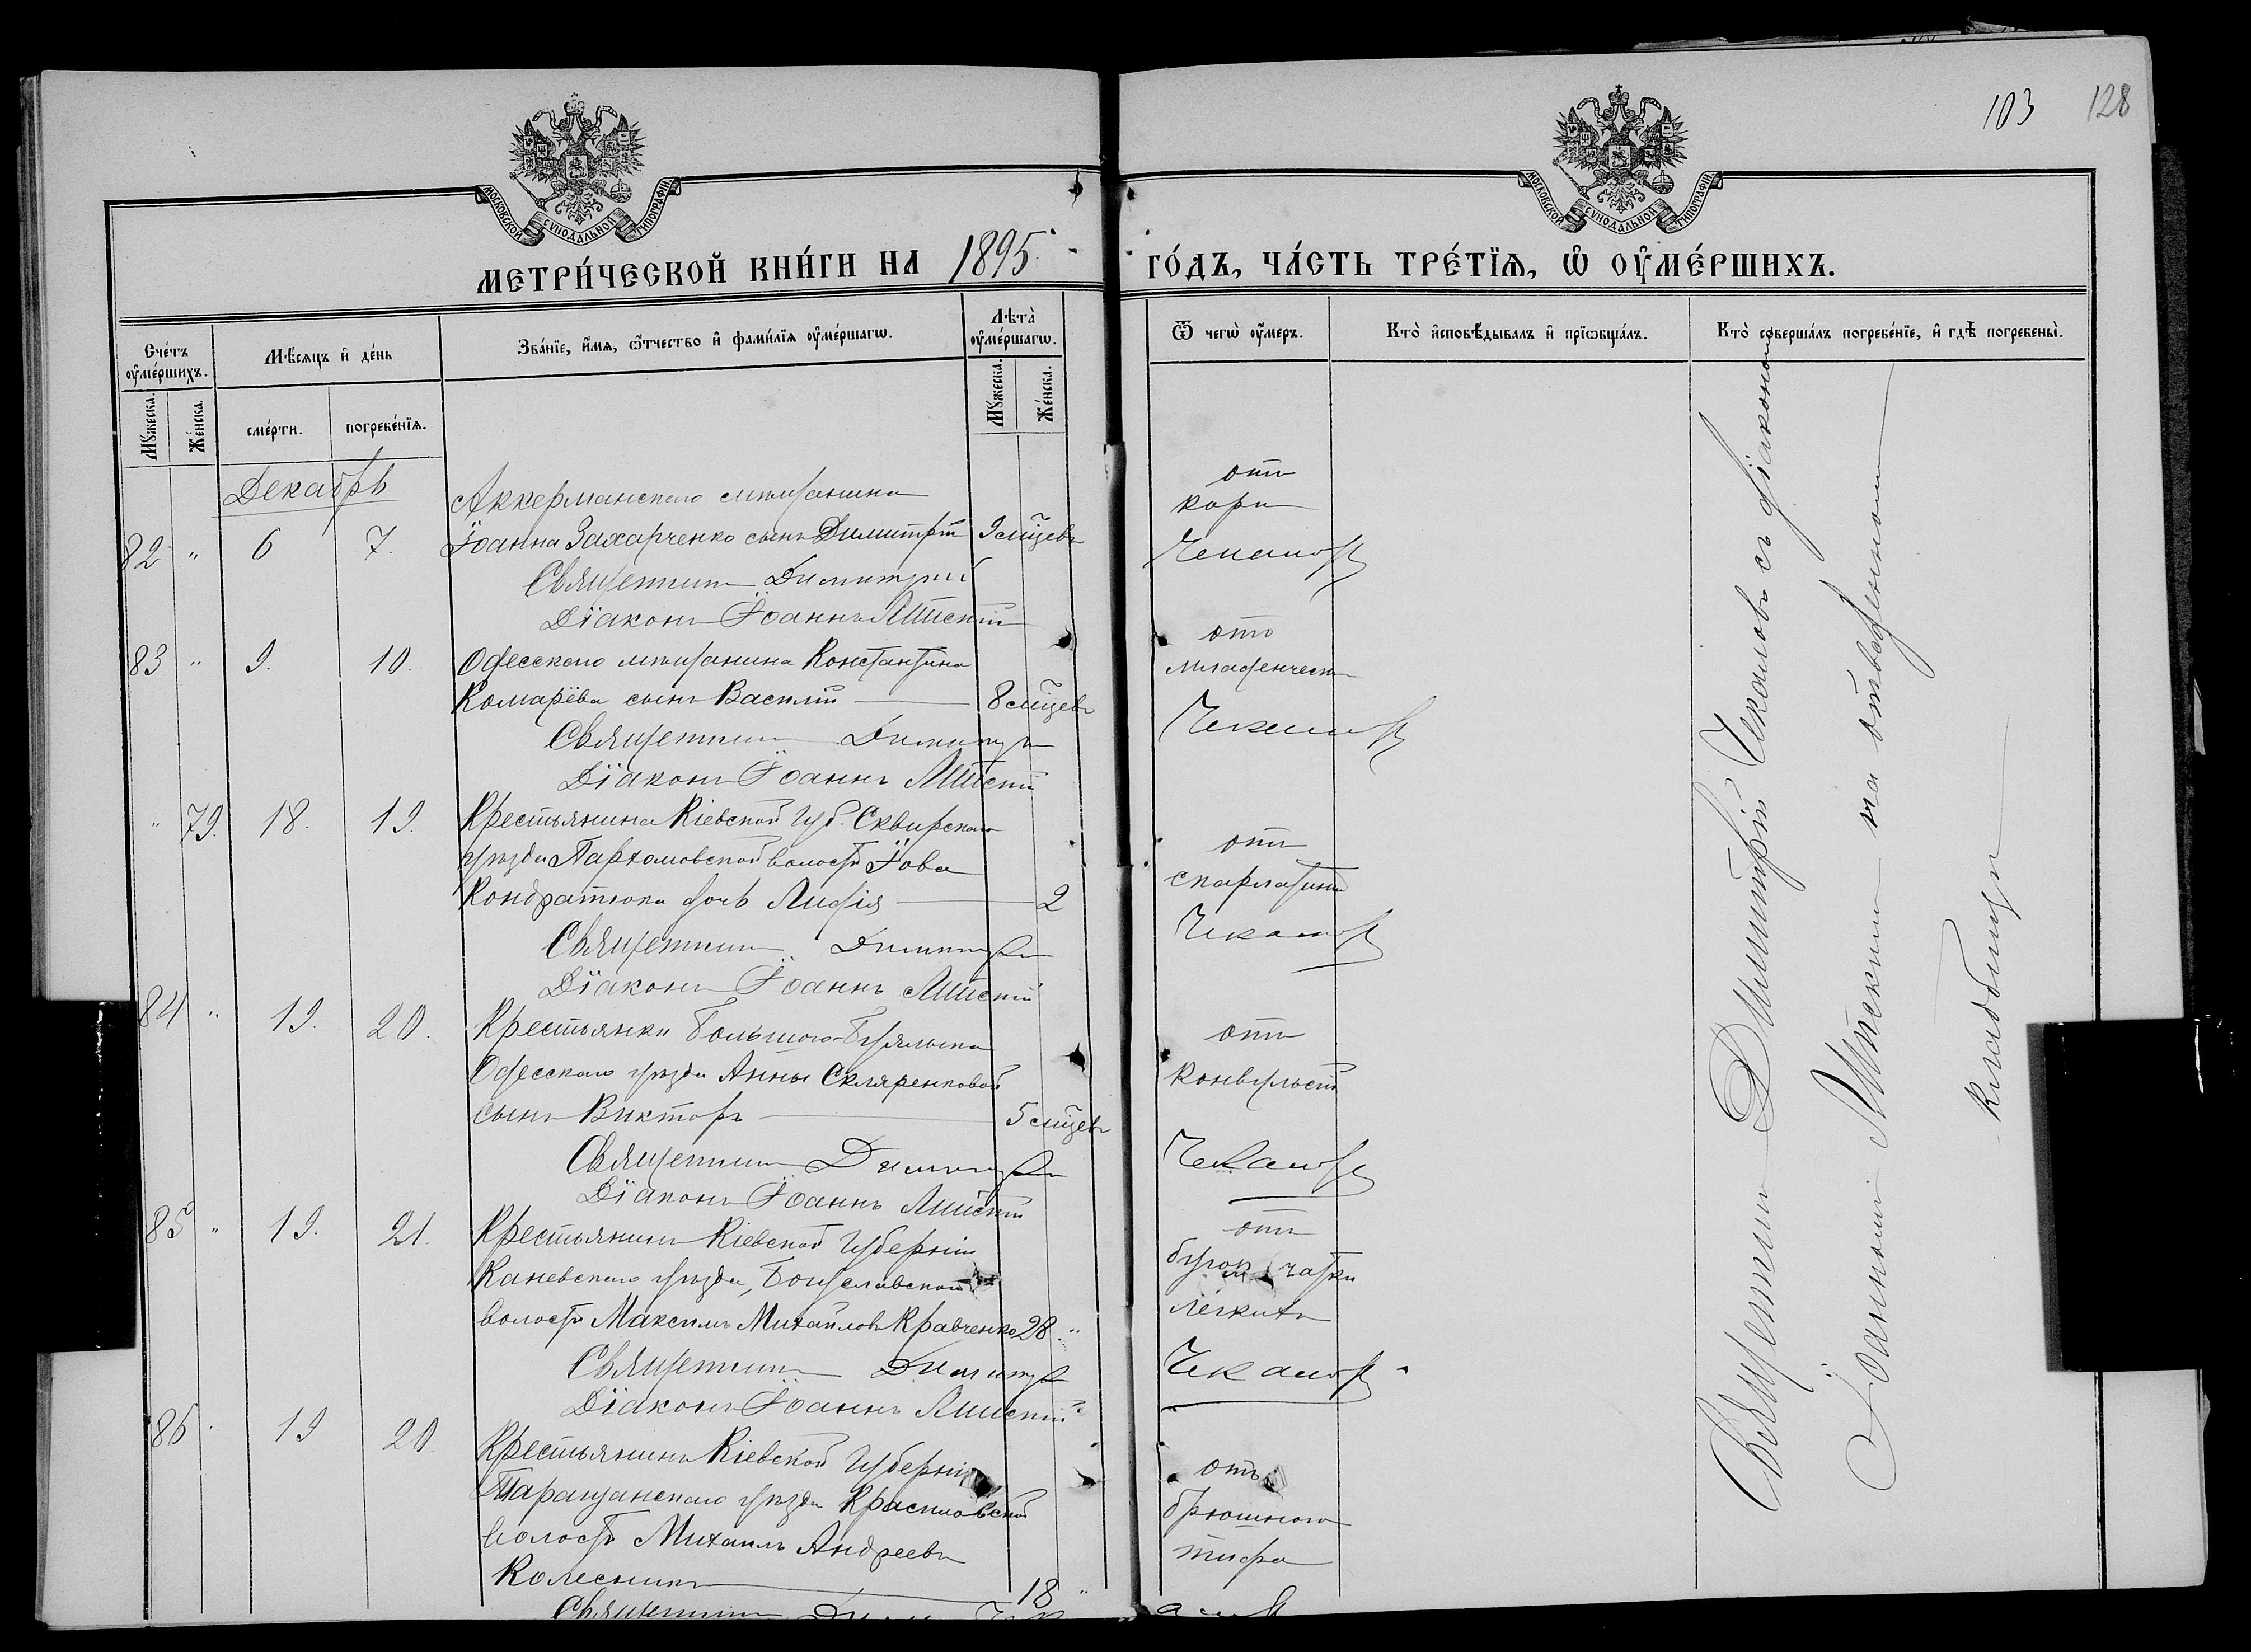 103 128
МОСКОВСКОЙ СѴНОДАЛЬНОЙ ТИПОГРАФІИ
МОСКОВСКОЙ СѴНОДАЛЬНОЙ ТИПОГРАФІИ
МЕТРИ́ЧЕСКОЙ КНИ́ГИ НА 1895 ГО́ДЪ, ЧА́СТЬ ТРЕ́ТЇѦ, Ѡ҆ ОУ҆МЕ́РШИХЪ.
Сче́тъ оу҆ме́ршихъ.
Мѣ́сѧцъ и҆ де́нь
Зва́нїе, и҆́мѧ, ѻ҆́тчество и҆ фами́лїѧ оу҆ме́ршагѡ.
Лѣта̀ оу҆ме́ршагѡ.
Ѿ чегѡ̀ оу҆́меръ.
Кто̀ и҆сповѣ́дывалъ и҆ прїѡбща́лъ.
Кто̀ соверша́лъ погребе́нїе, и҆ гдѣ̀ погребены̀.
Мꙋ́жеска.
Же́нска.
сме́рти.
погребе́нїѧ.
Мꙋ́жеска.
Же́нска.
Декабрь
Аккерманскаго мѣщанина
82 " 6 7. Іоанна Захарченко сынъ Димитрій 9 мѣсцевъ
отъ
кори
Священникъ Димитрій Чекановъ
Діаконъ Іоаннъ
83 " 9. 10. Одесскаго мѣщанина Константина
Комарёва сынъ Василій 8 мѣсцевъ
отъ
младенческ
Священникъ Димитрій Чекановъ
Діаконъ Іоаннъ
" 79. 18. 19. Крестьянина Кіевской губ. Сквирскаго
уѣзда Пархомовской волости Іова
Кондратюка дочь Лидія 2
отъ
скарлатины
Священникъ Димитрій Чекановъ
Діаконъ Іоаннъ
84 " 19. 20. Крестьянки Большого-Буялыка
Одесскаго уѣзда Анны Скляренковой
сынъ Викторъ 5 мѣсцевъ
отъ
конвульсій
Священникъ Димитрій Чекановъ
Діаконъ Іоаннъ
85 " 19. 21. Крестьянинъ Кіевской губерніи
Каневскаго уѣзда, Богуславской
волости Максимъ Михайловъ Кравченко 28 "
отъ
бугорчатки
лёгкихъ
Священникъ Димитрій Чекановъ
Діаконъ Іоаннъ
86 19 20. Крестьянинъ Кіевской губерніи
Таращанскаго уѣзда
волости Михаилъ Андреевъ
Колесникъ 18 "
отъ
брюшного
тифа
Священникъ
Священникъ Димитрій Чекановъ съ діакономъ
Іоанномъ на отведенномъ
кладбищѣ